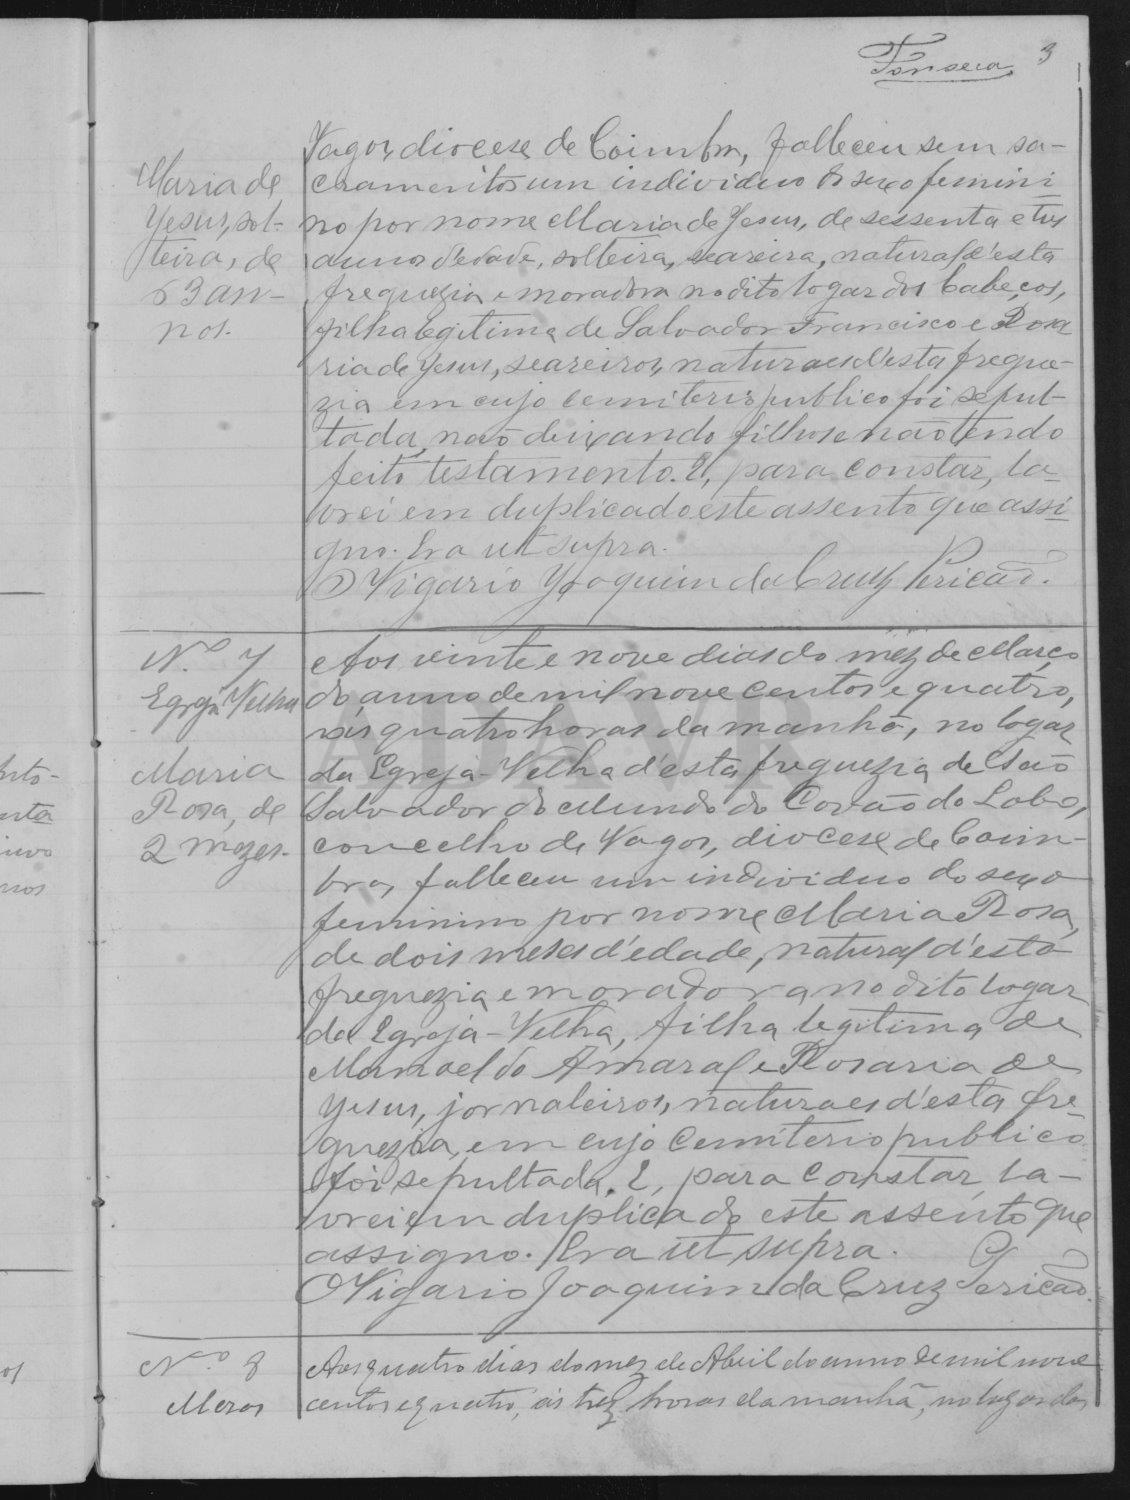 Fonseca 3
Vagos, diocese de Coimbra, falleceu sem sa-
Maria de
Jesus, sol-
teira, de
63 an-
nos.
cramentos um individuo do sexo femini
no por nome Maria de Jesus, de sessenta e tres
annos d'edade, solteira, seareira, natural d'esta
freguezia e moradora no dito logar dos Cabeços,
filha legitima de Salvador Francisco e Rosa
ria de Jesus, seareiros, naturaes d'esta fregue-
zia em cujo cemiterio publico foi sepul-
tada, não deixando filhos e não tendo
feito testamento. E, para constar, la-
vrei em duplicado este assento que assi
gno. Era ut supra.
O Vigario Joaquim da Cruz Pericão.
N.º 7
Egreja Velha
Maria
Rosa, de
2 mezes.
Aos vinte e nove dias do mez de Março
do anno de mil nove centos e quatro,
ás quatro horas da manhã, no logar
da Egreja-Velha d'esta freguezia de São
Salvador do Mundo do Covão do Lobo,
concelho de Vagos, diocese de Coim-
bra, falleceu um individuo do sexo
feminino por nome Maria Rosa,
de dois meses d'edade, natural d'esta
freguezia e moradora no dito logar
da Egreja-Velha, filha legitima de
Manoel do Amaral e Rosaria de
Jesus, jornaleiros, naturaes d'esta fre-
guezia, em cujo cemiterio publico
foi sepultada. E, para constar, la-
vrei em duplicado este assento que
assigno. Era ut supra.
O Vigario Joaquim da Cruz Pericão.
N.º 8
Mesas
Aos quatro dias do mez de Abril do anno de mil nove
centos e quatro, ás trez horas da manhã, no logar das
ADAVR